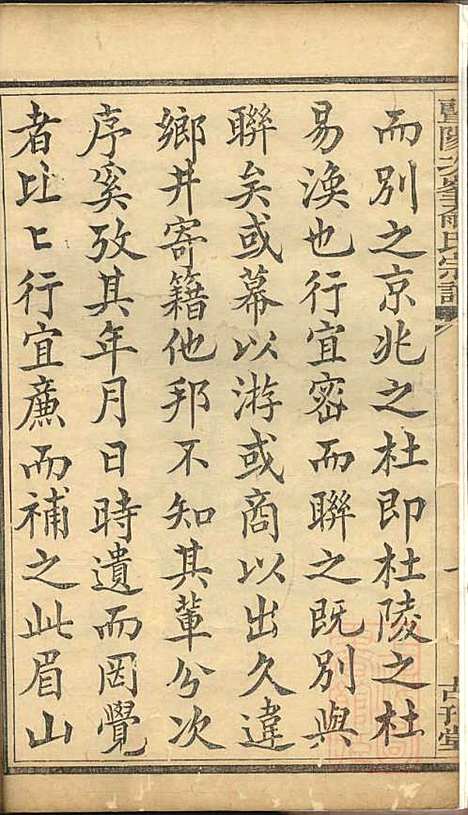 而別之京兆之杜即杜陵之杜
易渙也行宜密而聯之既別與
聯矣或幕以游或商以出久違
鄉井寄籍他邦不知其輩分次
序奚攷其年月日時遺而罔覺
者比比行宜廉而補之此眉山